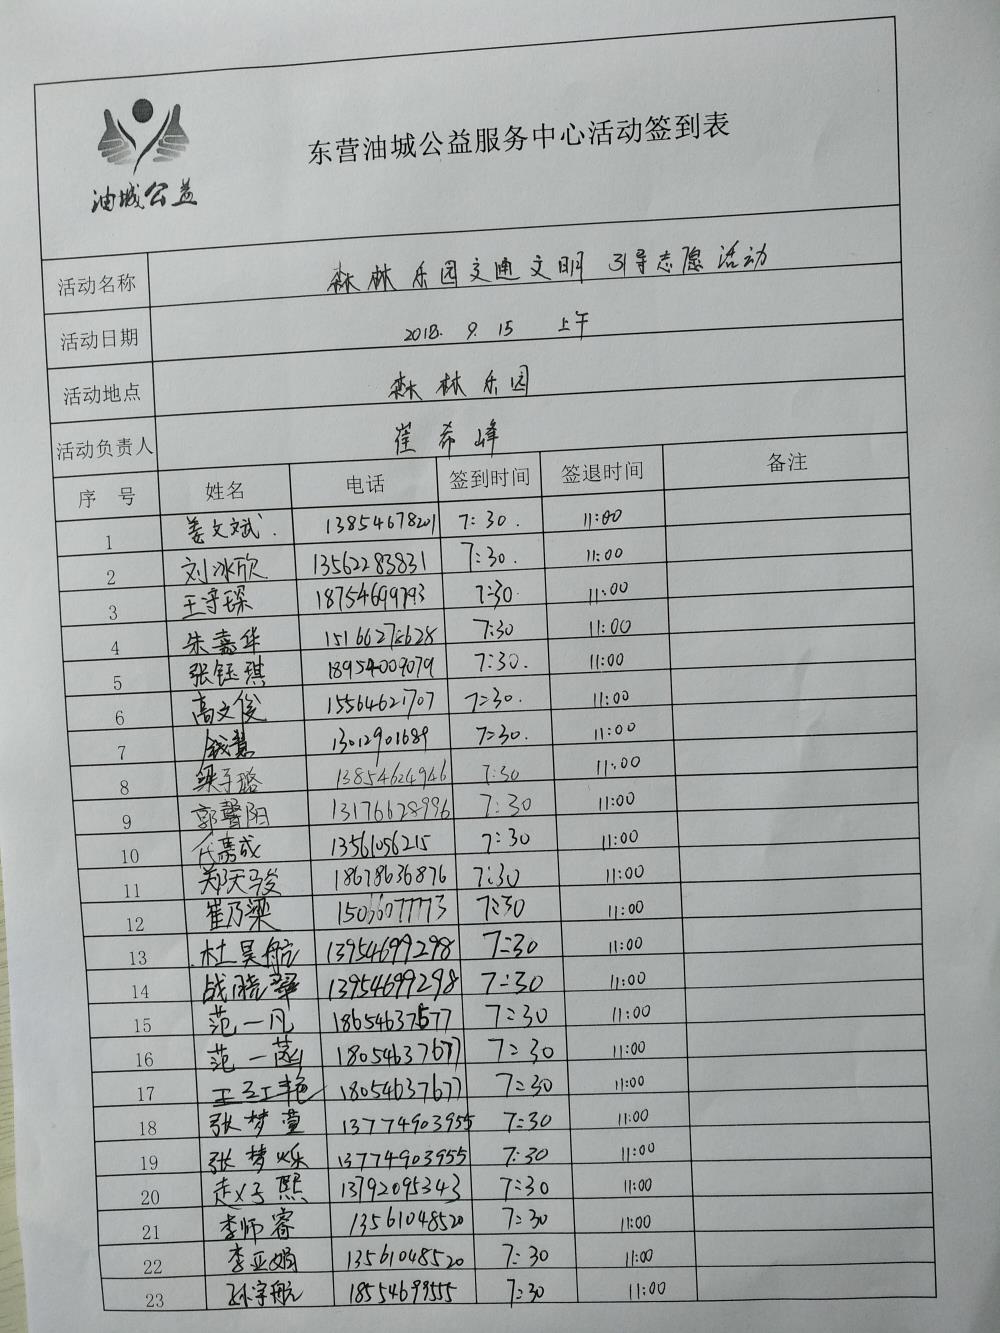 油城公益
东营油城公益服务中心活动签到表
活动名称 森林乐园交通文明引导志愿活动
活动日期 2018. 9. 15 上午
活动地点 森林乐园
活动负责人 崔希峰
序号 姓名 电话 签到时间 签退时间 备注
1 姜文斌. 13854678201 7:30. 11:00
2 刘冰欣 13562283831 7:30. 11:00
3 王守琛 18754699793 7:30 11:00
4 朱嘉华 15166278628 7:30 11:00
5 张钰琪 18954009079 7:30. 11:00
6 高文俊 15564621707 7:30. 11:00
7 钱慧 13012901689 7:30. 11:00
8 梁子璐 13854624946 7:30 11:00
9 郭馨阳 13176628996 7:30 11:00
10 代嘉成 13561056215 7:30 11:00
11 郑天骏 18678636876 7:30 11:00
12 崔乃梁 15066077773 7:30 11:00
13 杜昊航 13954699298 7:30 11:00
14 战晓翠 13954699298 7:30 11:00
15 范一凡 18654637677 7:30 11:00
16 范一菡 18054637677 7:30 11:00
17 王红艳 18054637677 7:30 11:00
18 张梦萱 13774903955 7:30 11:00
19 张梦烁 13774903955 7:30 11:00
20 赵子熙 13792095343 7:30 11:00
21 李师睿 13561048520 7:30 11:00
22 李亚娟 13561048520 7:30 11:00
23 孙宇航 18554699555 7:30 11:00